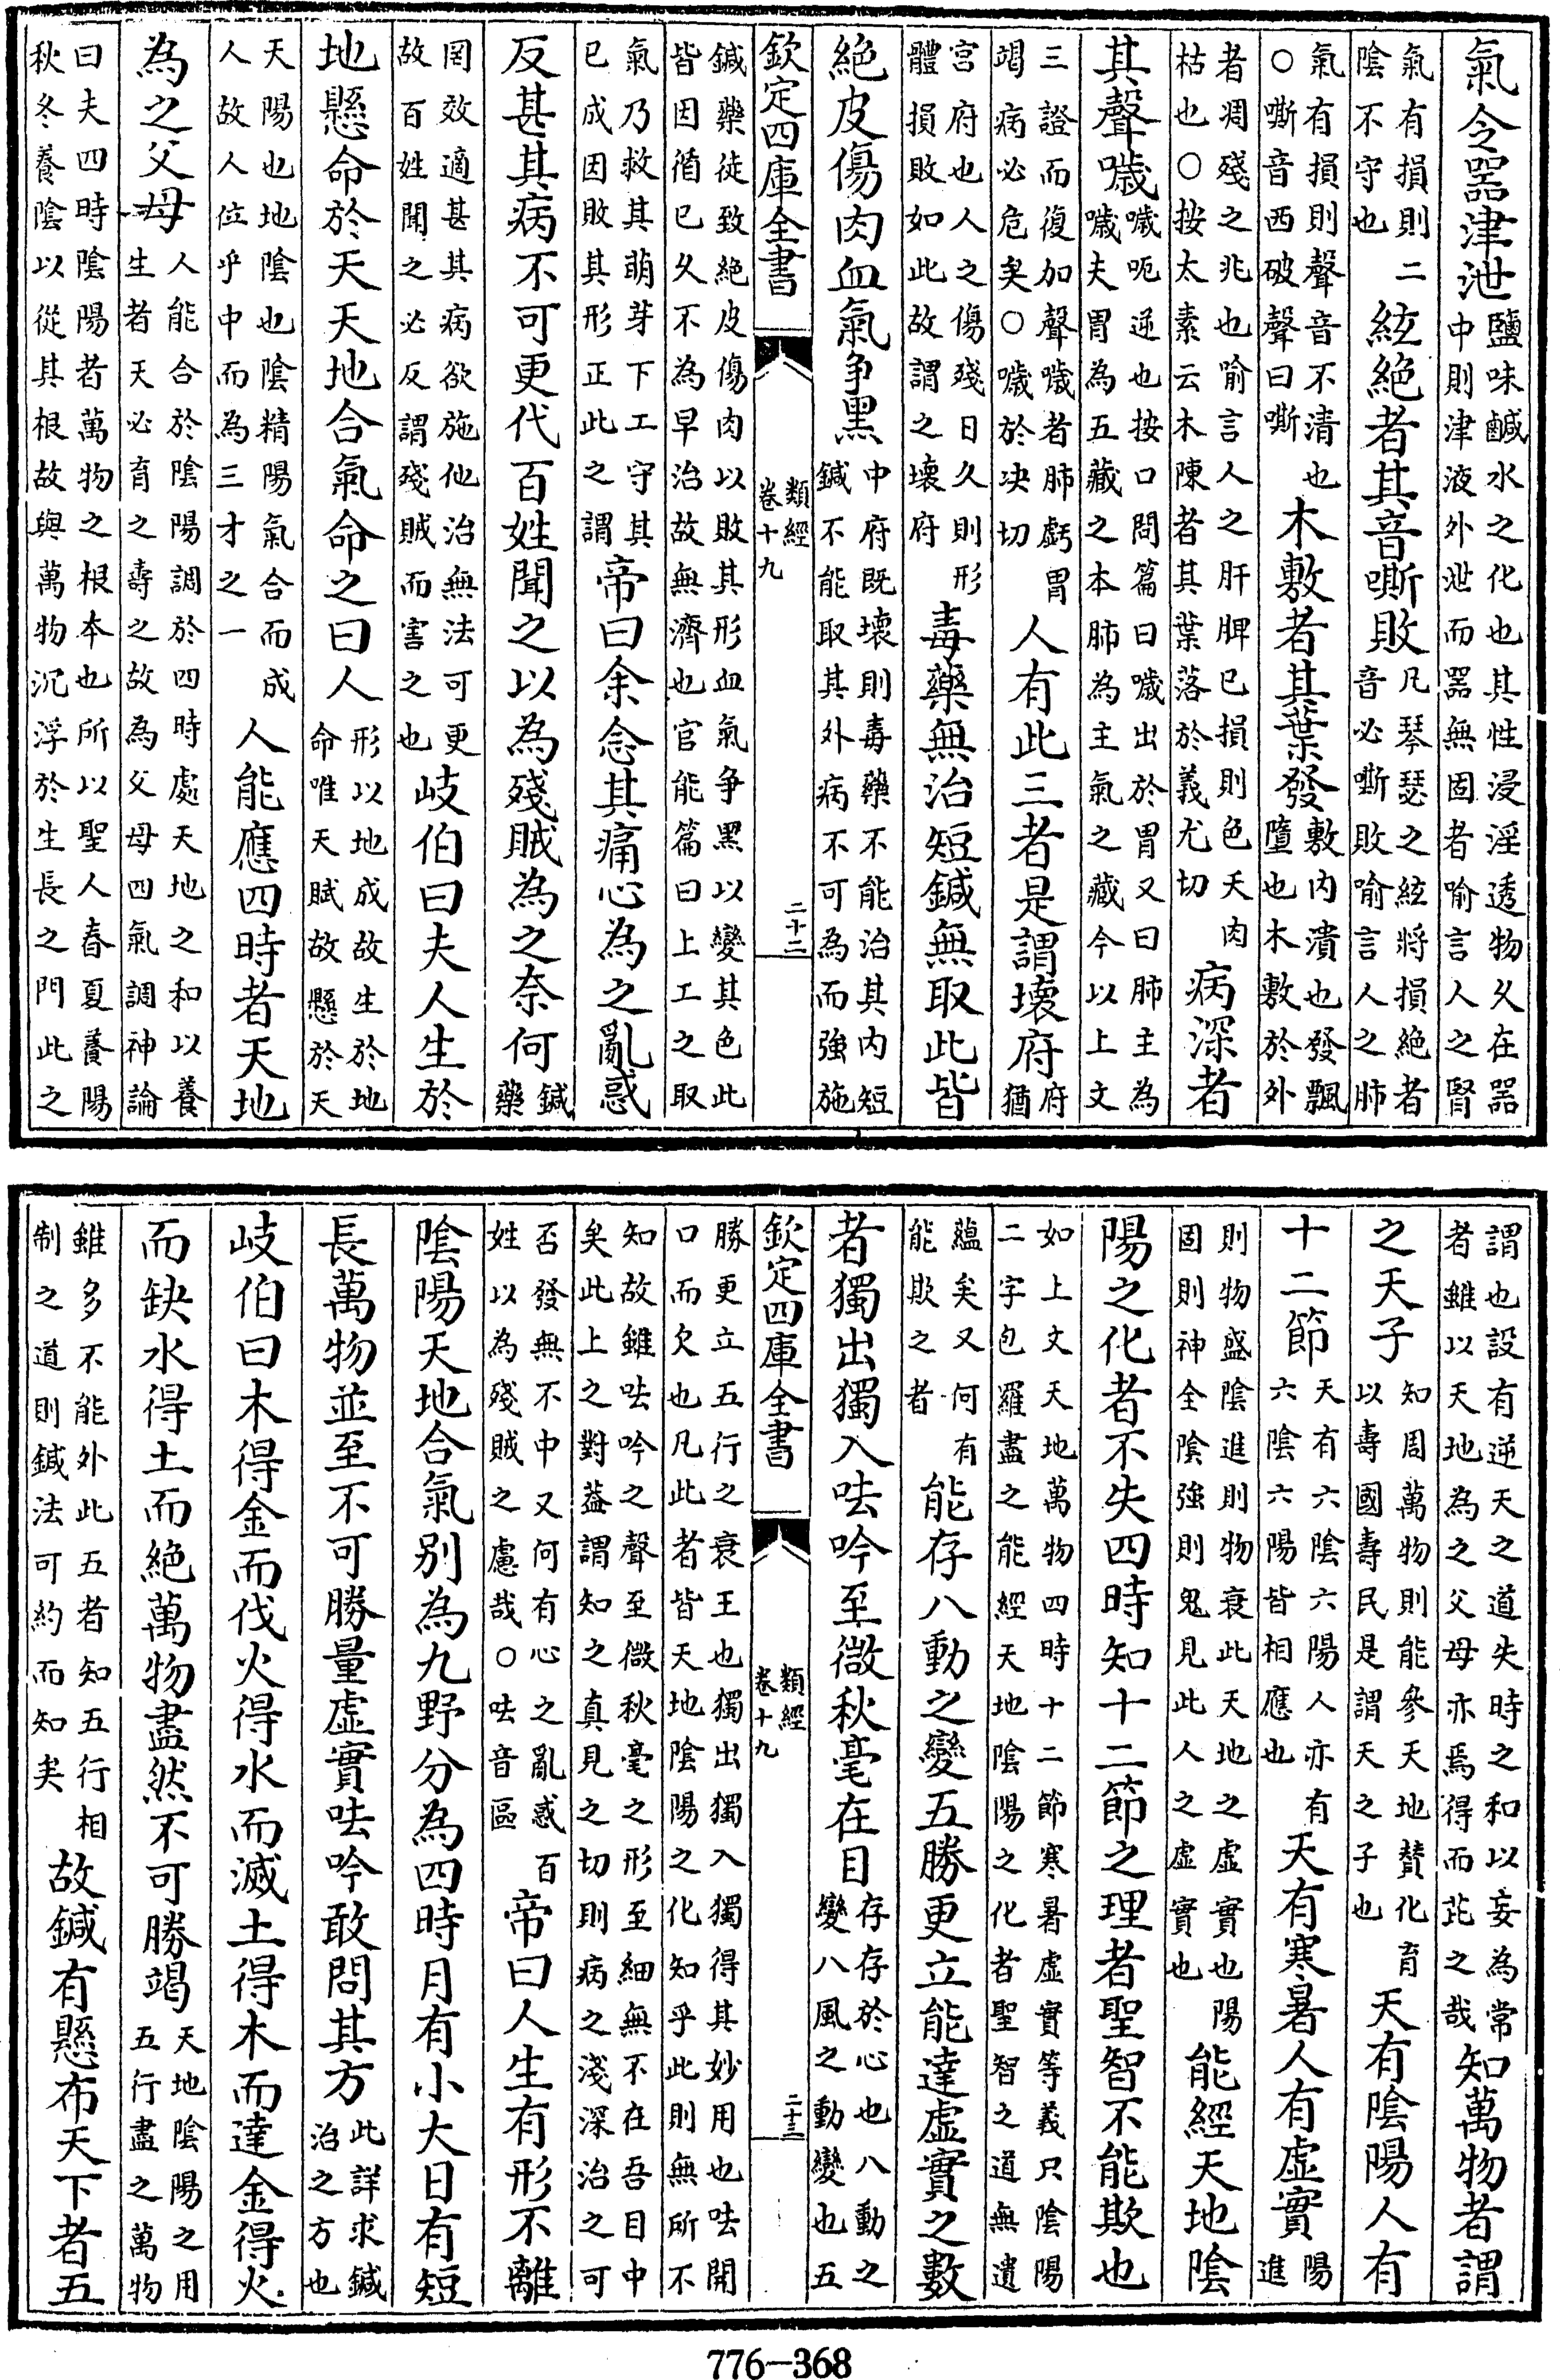 氣令器津泄鹽味鹹水之化也其性浸淫透物久在器
中則津液外泄而器無固者喻言人之腎
氣有損則二
陰不守也絃絶者其音嘶敗凡琴瑟之絃將損絶者
音必嘶敗喻言人之肺
氣有損則聲音不清也
○嘶音西破聲曰嘶木敷者其葉發敷内潰也發飄
墮也木敷於外
者凋殘之兆也喻言人之肝脾已損則色夭肉
枯也○按太素云木陳者其葉落於義尤切病深者
其聲噦噦呃逆也按口問篇曰噦出於胃又曰肺主為
噦夫胃為五藏之本肺為主氣之藏今以上文
三證而復加聲噦者肺虧胃
竭病必危矣○噦於决切人有此三者是謂壞府府
猶
宮府也人之傷殘日久則形
體損敗如此故謂之壞府毒藥無治短鍼無取此皆
絶皮傷肉血氣争黑中府既壞則毒藥不能治其内短
鍼不能取其外病不可為而強施
欽定四庫全書
類經
卷十九
二十二
鍼藥徒致絶皮傷肉以敗其形血氣争黑以變其色此
皆因循已久不為早治故無濟也官能篇曰上工之取
氣乃救其萌芽下工守其
已成因敗其形正此之謂帝曰余念其痛心為之亂惑
反甚其病不可更代百姓聞之以為殘賊為之奈何鍼
藥
罔效適甚其病欲施他治無法可更
故百姓聞之必反謂殘賊而害之也岐伯曰夫人生於
地懸命於天天地合氣命之曰人形以地成故生於地
命唯天賦故懸於天
天陽也地陰也陰精陽氣合而成
人故人位乎中而為三才之一人能應四時者天地
為之父母人能合於陰陽調於四時處天地之和以養
生者天必育之壽之故為父母四氣調神論
曰夫四時陰陽者萬物之根本也所以聖人春夏養陽
秋冬養陰以從其根故與萬物沉浮於生長之門此之
謂也設有逆天之道失時之和以妄為常
者雖以天地為之父母亦焉得而芘之哉知萬物者謂
之天子知周萬物則能參天地賛化育
以壽國壽民是謂天之子也天有陰陽人有
十二節天有六陰六陽人亦有
六陰六陽皆相應也天有寒暑人有虛實陽
進
則物盛陰進則物衰此天地之虛實也陽
固則神全陰強則鬼見此人之虛實也能經天地陰
陽之化者不失四時知十二節之理者聖智不能欺也
如上文天地萬物四時十二節寒暑虛實等義只陰陽
二字包羅盡之能經天地陰陽之化者聖智之道無遺
蘊矣又何有
能欺之者能存八動之變五勝更立能達虛實之數
者獨出獨入呿吟至微秋毫在目存存於心也八動之
變八風之動變也五
欽定四庫全書
類經
卷十九
二十三
勝更立五行之衰王也獨出獨入獨得其妙用也呿開
口而欠也凡此者皆天地陰陽之化知乎此則無所不
知故雖呿吟之聲至微秋毫之形至細無不在吾目中
矣此上之對葢謂知之真見之切則病之淺深治之可
否發無不中又何有心之亂惑百
姓以為殘賊之慮哉○呿音區帝曰人生有形不離
陰陽天地合氣别為九野分為四時月有小大日有短
長萬物並至不可勝量虛實呿吟敢問其方此詳求鍼
治之方也
岐伯曰木得金而伐火得水而滅土得木而達金得火
而缺水得土而絶萬物盡然不可勝竭天地陰陽之用
五行盡之萬物
雖多不能外此五者知五行相
制之道則鍼法可約而知矣故鍼有懸布天下者五
776-368